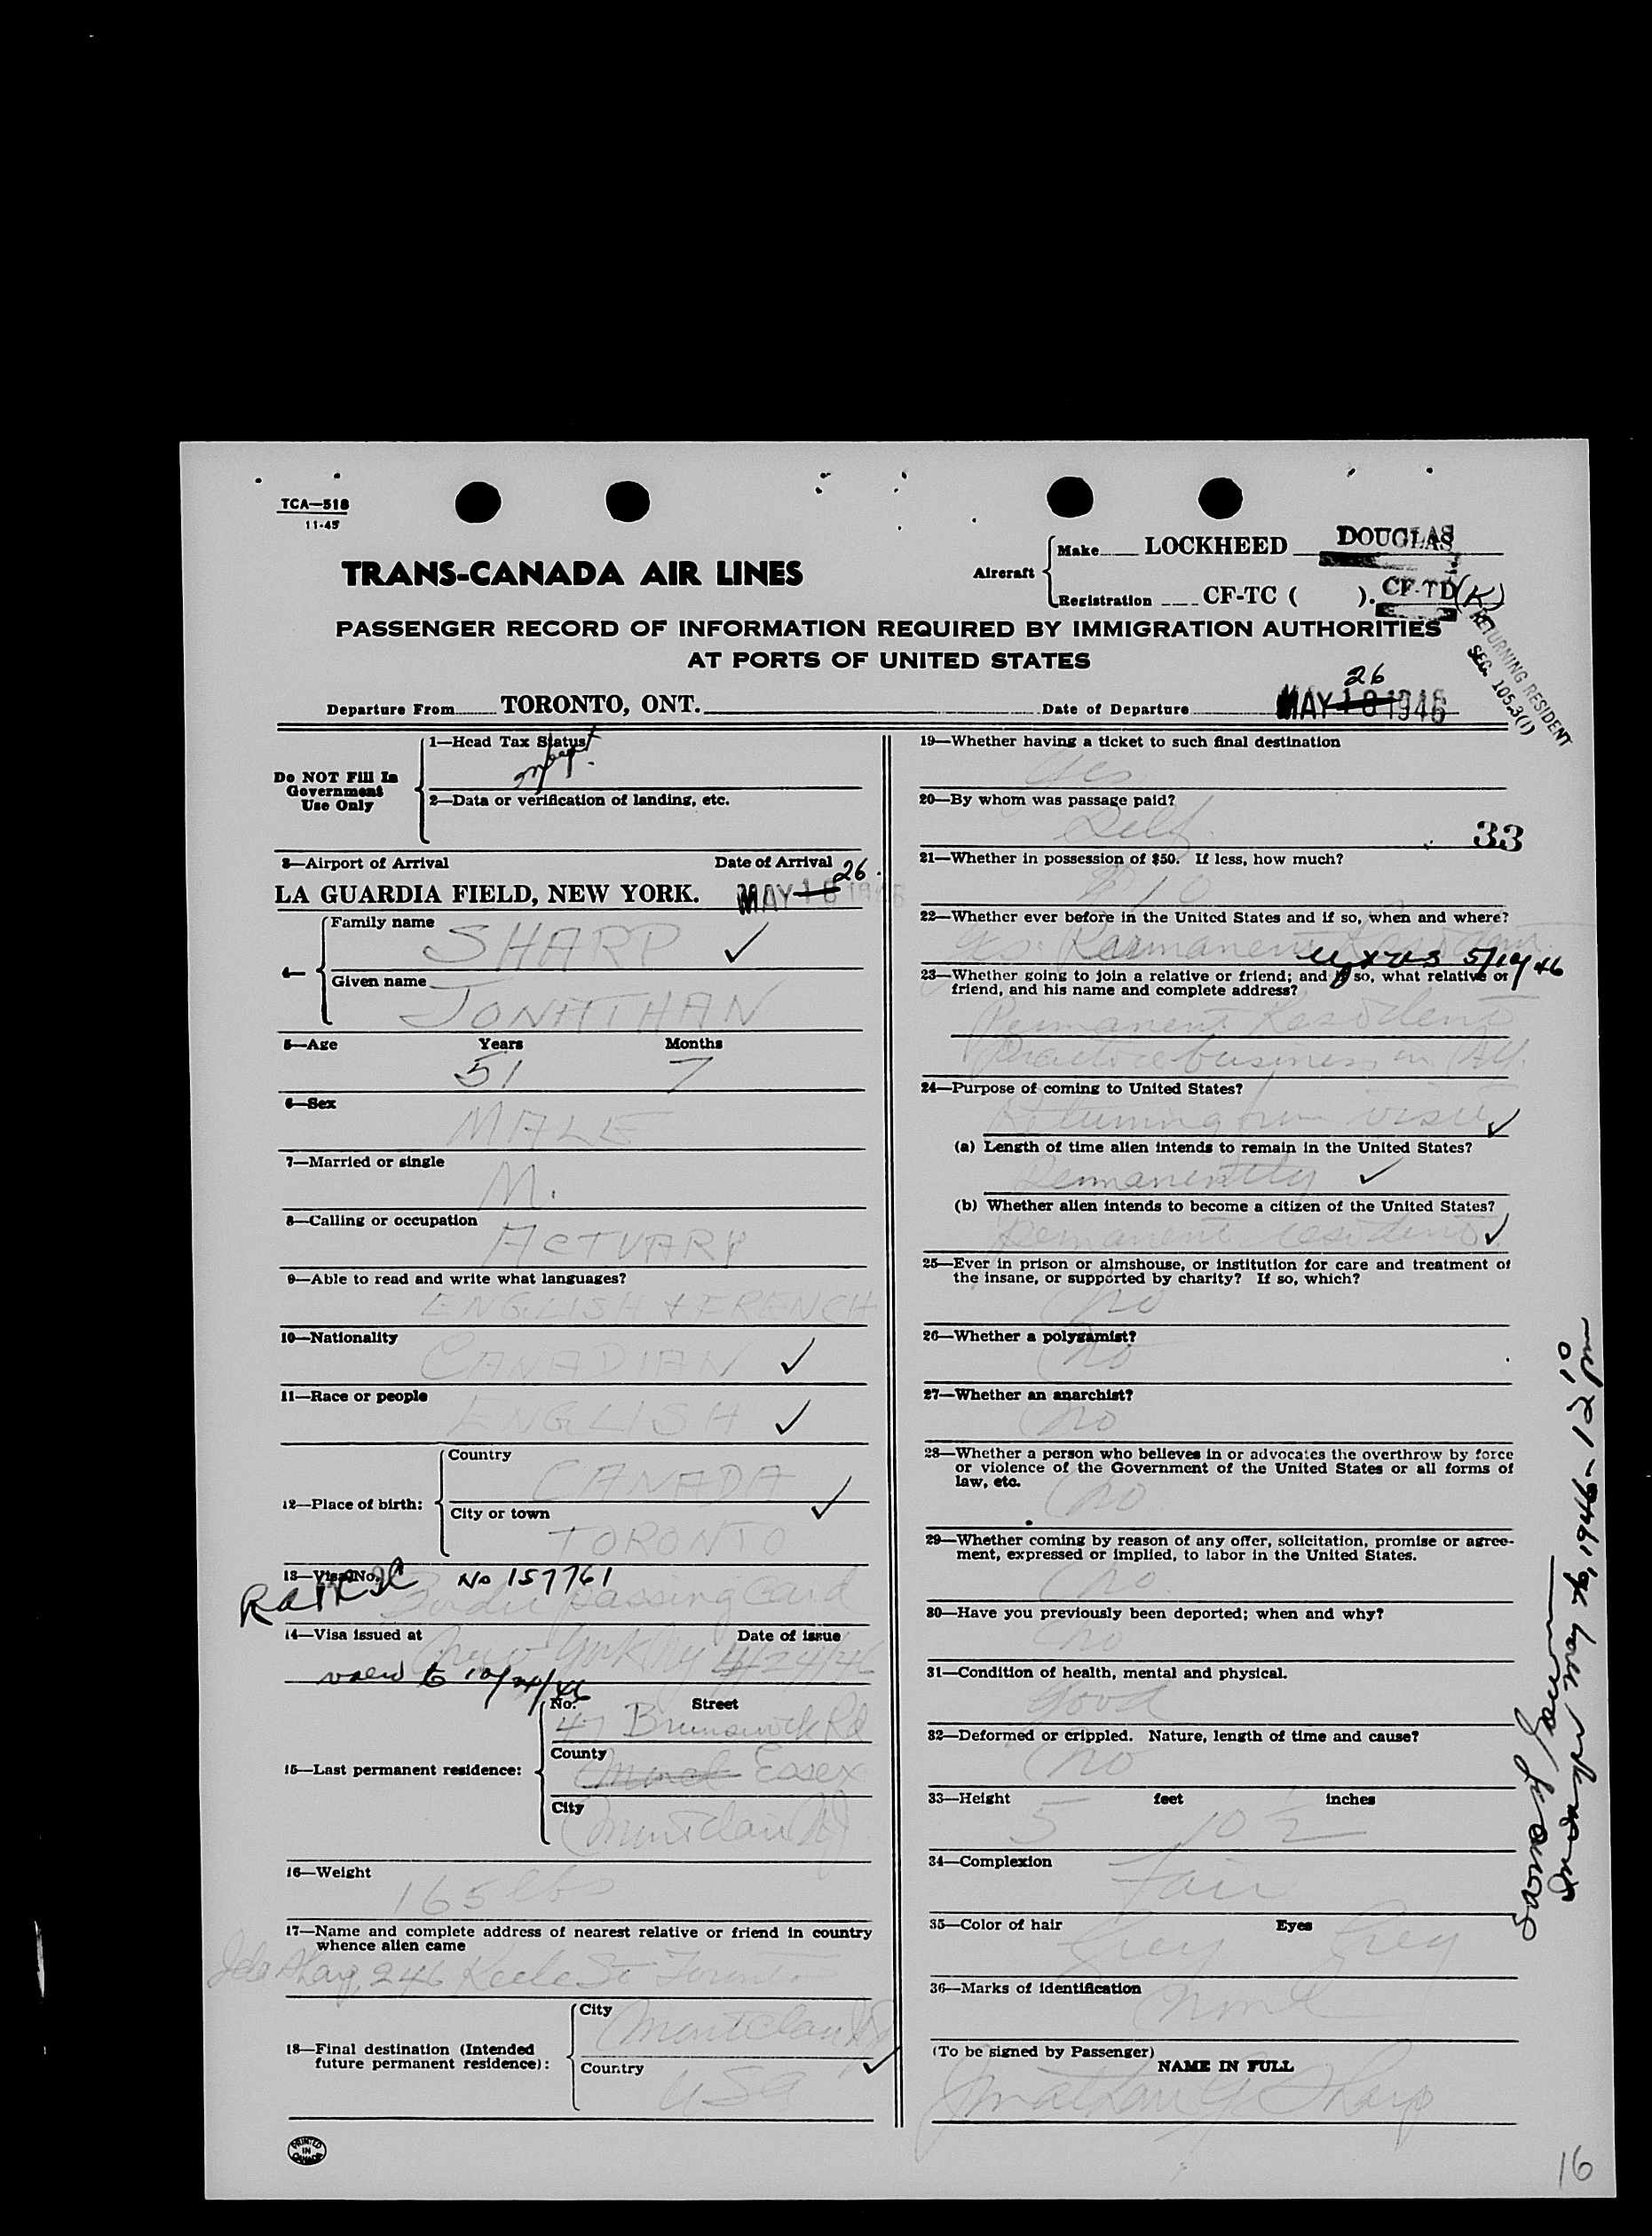 TCA—518
11-45
TRANS-CANADA AIR LINES
Aircraft
Make LOCKHEED DOUGLAS
Registration CF-TC ( ). CF-TD (K)
PASSENGER RECORD OF INFORMATION REQUIRED BY IMMIGRATION AUTHORITIES
AT PORTS OF UNITED STATES
RETURNING RESIDENT
SEC. 105.3(1)
Departure From TORONTO, ONT.
26
Date of Departure MAY 18 1946
Do NOT Fill In
Government
Use Only
1—Head Tax Status
2—Data or verification of landing, etc.
3—Airport of Arrival Date of Arrival 26
LA GUARDIA FIELD, NEW YORK. MAY 18 1946
4— Family name
SHARP ✓
Given name
JONATHAN
5—Age Years Months
51 7
6—Sex
MALE
7—Married or single
M.
8—Calling or occupation
ACTUARY
9—Able to read and write what languages?
ENGLISH & FRENCH
10—Nationality
CANADIAN ✓
11—Race or people
ENGLISH ✓
12—Place of birth:
Country
CANADA
✓
City or town
TORONTO
13—Visa No. No 157761
Border passing Card
14—Visa issued at Date of issue
New York NY 4/24/46
valid to 10/24/46
15—Last permanent residence:
No. Street
47 Brunswick Rd
County
Essex
City
Montclair NJ
16—Weight
165 lbs
17—Name and complete address of nearest relative or friend in country
whence alien came
Ida Sharp, 246 Keele St Toronto
18—Final destination (Intended
future permanent residence):
City
Montclair NJ
Country ✓
USA
PRINTED
IN
CANADA
19—Whether having a ticket to such final destination
Yes
20—By whom was passage paid?
Self.
33
21—Whether in possession of $50. If less, how much?
$10
22—Whether ever before in the United States and if so, when and where?
Yes: Permanent Resident
5/19/46
23—Whether going to join a relative or friend; and if so, what relative or
friend, and his name and complete address?
Permanent Resident
Practice business in NY.
24—Purpose of coming to United States?
Returning from visit ✓
(a) Length of time alien intends to remain in the United States?
Permanently ✓
(b) Whether alien intends to become a citizen of the United States?
Permanent resident ✓
25—Ever in prison or almshouse, or institution for care and treatment of
the insane, or supported by charity? If so, which?
No
26—Whether a polygamist?
No
27—Whether an anarchist?
No
28—Whether a person who believes in or advocates the overthrow by force
or violence of the Government of the United States or all forms of
law, etc.
No
29—Whether coming by reason of any offer, solicitation, promise or agree-
ment, expressed or implied, to labor in the United States.
No.
30—Have you previously been deported; when and why?
No
31—Condition of health, mental and physical.
Good
32—Deformed or crippled. Nature, length of time and cause?
No
33—Height feet inches
5 10 ½
34—Complexion
Fair
35—Color of hair Eyes
Grey Grey
36—Marks of identification
None
(To be signed by Passenger)
NAME IN FULL
Jonathan G Sharp
Inspector May 26, 1946 - 12 10 pm
16